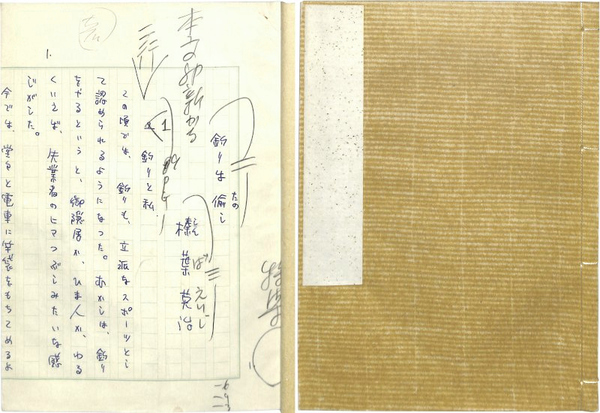 釣りは愉し
たの
榛葉英治
しんばえいじ
1
釣りと私
この頃では、釣りも、立派なスポーツとし
て認められるようになつた。むかしは、釣り
をやるというと、御隠居か、ひま人か、わる
くいえば、失業者のヒマつぶしみたいな感
じがした。
今では、堂々と電車に竿袋をもちこめるよ
1.